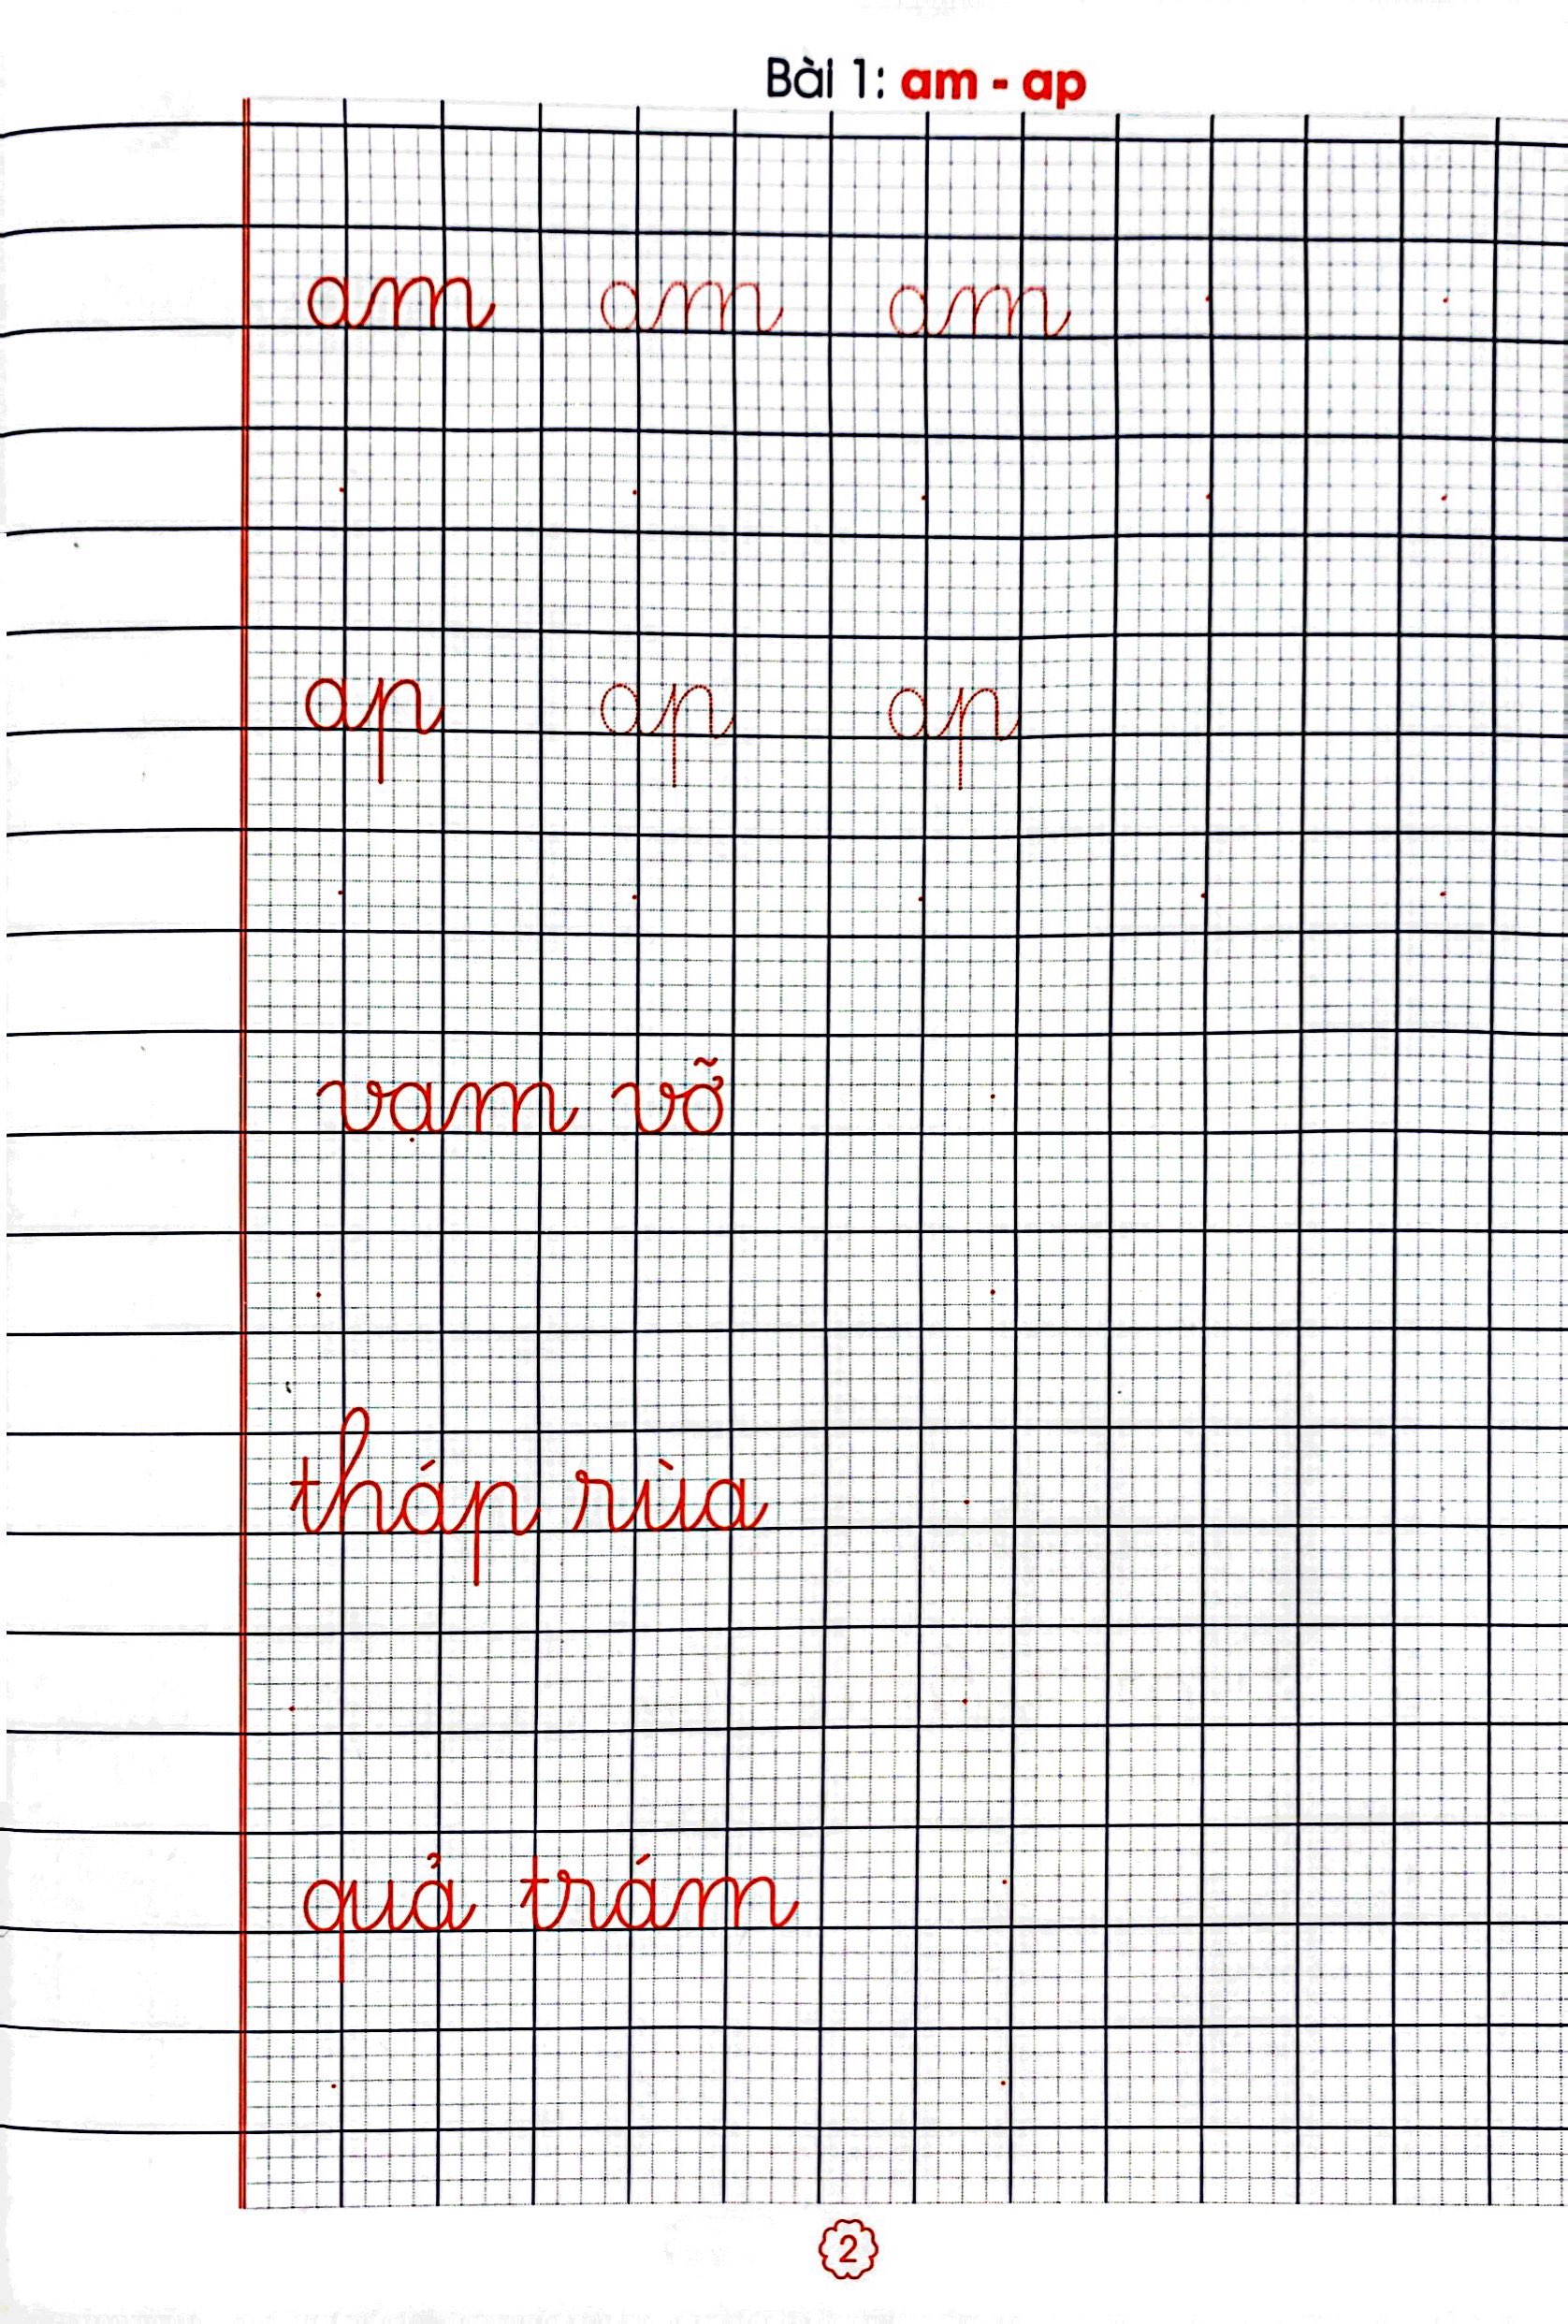 Bài 1: am - ap
am am am
ap ap ap
vạm vỡ
tháp rùa
quả trám
2